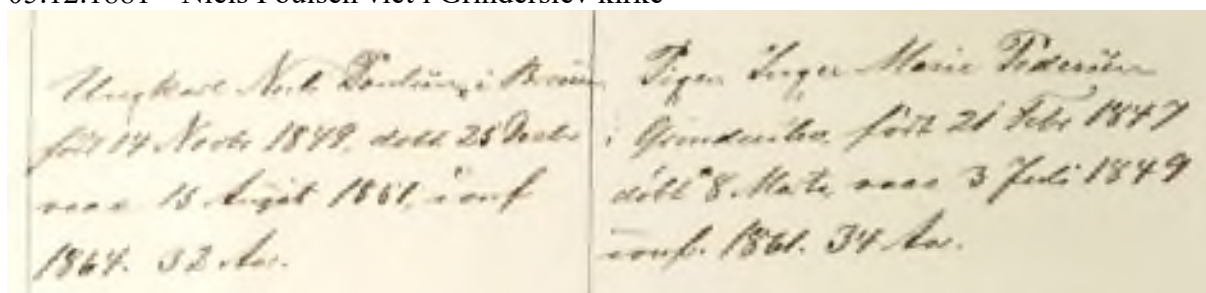 Niels Poulsen viet i Grinderslev kirke
Ungkarl Niels Poulsen, i
født 14 Novbr 1849, døbt 25 Decbr
vacc 15 August 1851, conf
1864. 32 Aar.
Pigen Inger Marie Pedersen
i født 21 Febr 1847
døbt 8 Marts vacc 3 Juli 1849
conf. 1861. 34 Aar.